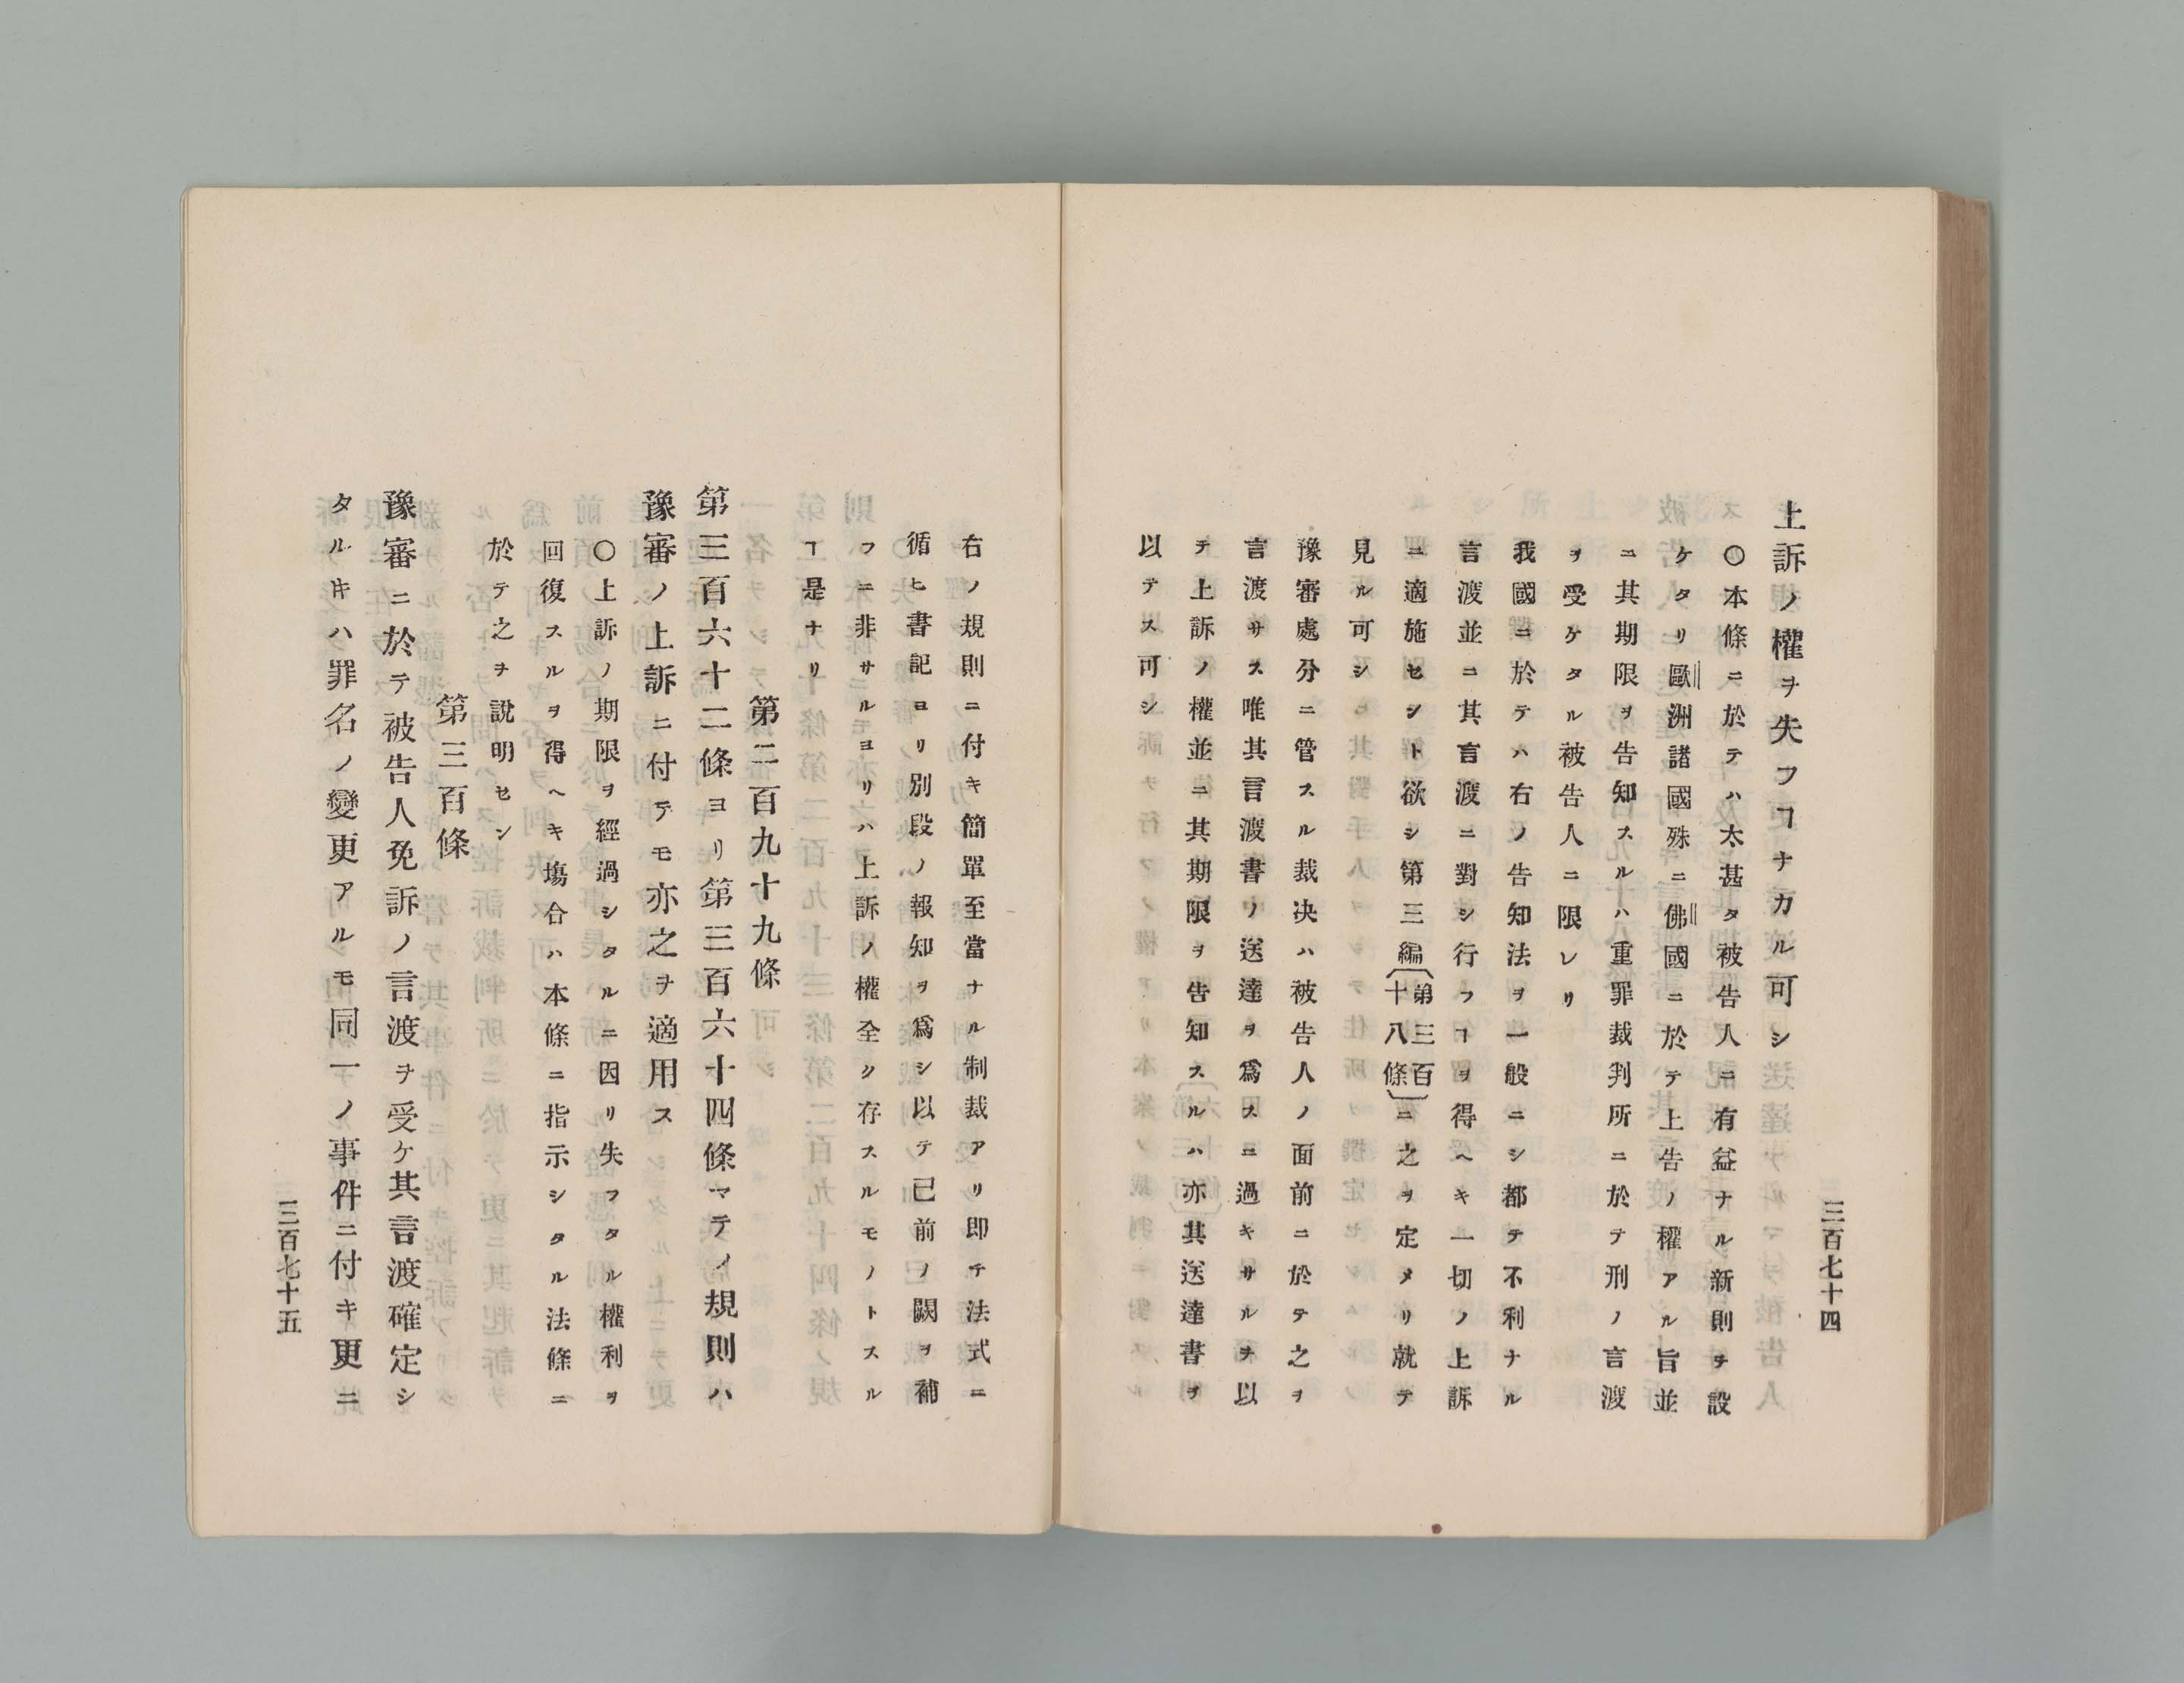 三百七十四
上訴ノ權ヲ失フヿナカル可シ
〇本條ニ於テハ太甚タ被告人ニ有益ナル新則ヲ設
ケタリ歐洲諸國殊ニ佛國ニ於テ上告ノ權アル旨並
ニ其期限ヲ告知スルハ重罪裁判所ニ於テ刑ノ言渡
ヲ受ケタル被告人ニ限レリ
我國ニ於テハ右ノ告知法ヲ一般ニシ都テ不利ナル
言渡並ニ其言渡ニ對シ行フヿヲ得ヘキ一切ノ上訴
ニ適施セシト欲シ第三編〔第三百十八條〕ニ之ヲ定メリ就テ
見ル可シ
豫審處分ニ管スル裁决ハ被告人ノ面前ニ於テ之ヲ
言渡サス唯其言渡書ノ送達ヲ爲スニ過キサルヲ以
テ上訴ノ權並ニ其期限ヲ告知スルハ亦其送達書ヲ
以テス可シ
右ノ規則ニ付キ簡單至當ナル制裁アリ即チ法式ニ
循ヒ書記ヨリ別段ノ報知ヲ爲シ以テ己前ノ闕ヲ補
フニ非サルヨリハ上訴ノ權全ク存スルモノトスル
ヿ是ナリ
第二百九十九條
第三百六十二條ヨリ第三百六十四條マテノ規則ハ
豫審ノ上訴ニ付テモ亦之ヲ適用ス
〇上訴ノ期限ヲ經過シタルニ因リ失フタル權利ヲ
回復スルヲ得ヘキ塲合ハ本條ニ指示シタル法條ニ
於テ之ヲ說明セン
第三百條
豫審ニ於テ被告人免訴ノ言渡ヲ受ケ其言渡確定シ
タルキハ罪名ノ變更アルモ同一ノ事件ニ付キ更ニ
三百七十五